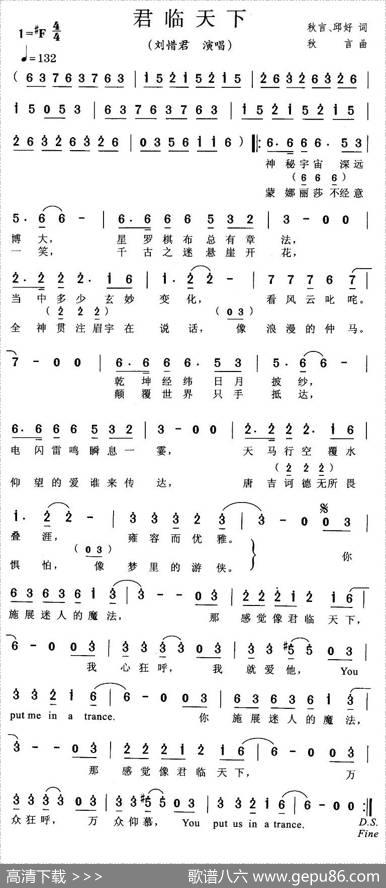 君临天下
1=#F 4/4
(刘惜君 演唱)
秋言、邱好 词
秋 言 曲
♩=132
( 6 3 7 6 3 7 6 3 | 1 5 2 1 5 2 1 5 | 2 6 3 2 6 3 2 6 |
1 5 2 1 5 2 1 5 | 6 3 7 6 3 7 6 3 | 1 5 2 1 5 2 1 5 |
2 6 3 2 6 3 2 6 | 0 3 5 6 1 1 6 ) ‖: 6. 6 6 6. 5 3 |
神秘宇宙 深远
( 6 6 6 )
蒙娜丽莎不经意
5. 6 6 - | 6. 6 6 6 5 3 2 | 3 - 0 0 |
博大, 星罗棋布总有章法,
一笑, 千古之迷悬崖开花,
2. 2 2 2. 1 6 | 1. 2 2 - | 7 7 7 6 7 |
当中多少玄妙 变化, 看风云叱咤。
( 2 2 2 ) ( 0 3 )
全神贯注眉宇在 说话, 像 浪漫的仲马。
7 - 0 0 | 6. 6 6 6. 5 3 | 5. 6 6 - |
乾坤经纬 日月 披纱,
颠覆世界 只手 抵达,
6. 6 6 6 5 3 2 | 3 - 0 0 | 2. 2 2 2. 1 6 |
电闪雷鸣瞬息一霎, 天马行空 覆水
( 2 2 2 )
仰望的爱谁来传达, 唐吉诃德无所畏
1. 2 2 - | 3 3 3 2 3 | 3 - 0 0 3 |
叠涯, 雍容而优雅。
( 0 3 ) 你
惧怕, 像 梦里的游侠。
6 3 6 3 6 1 3 | 3 - 0 0 3 | 2 1 1 2 1 2 1 6 |
施展迷人的魔法, 那 感觉像君临天下,
6 - 0 6 | 1 3 3 0 2 | 3 3 #5 5 0 3 |
我 心狂呼, 我 就爱他, You
3 3 2 1 6 | 6 - 0 0 3 | 6 3 6 3 6 1 3 |
put me in a trance. 你 施展迷人的魔法,
3 - 0 0 3 | 2 1 1 2 1 2 1 6 | 6 - 0 0 6 |
那 感觉像君临天下, 万
1 3 3 0 2 | 3 3 #5 5 0 3 | 3 3 2 1 6 | 6 - 0 0 :‖
众狂呼, 万 众仰慕, You put us in a trance. D.S.
Fine
高清下载 >>> 歌谱八六 www.gepu86.com